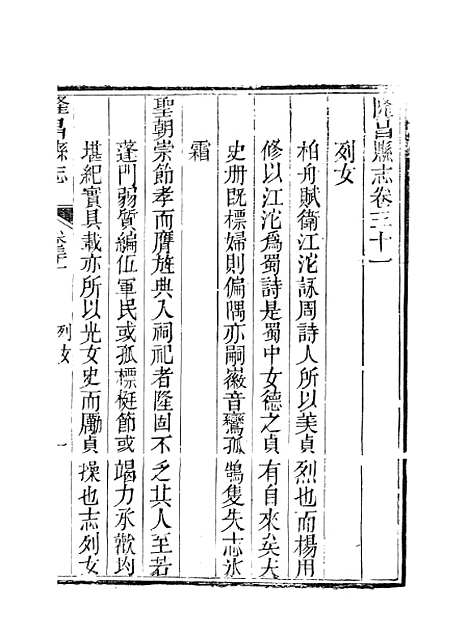 隆昌縣志卷三十一
列女
柏舟賦衛江沱詠周詩人所以美貞烈也而楊用
修以江沱爲蜀詩是蜀中女德之貞有自來矣大
史册既標婦則偏隅亦嗣徽音鸞孤鵠隻失志氷
霜
聖朝崇節孝而膺旌典入祠祀者隆固不乏其人至若
蓬門弱質編伍軍民或孤標梃節或竭力承歡均
堪紀實具載亦所以光女史而勵貞操也志列女
隆昌縣志
卷三十一
列女
一